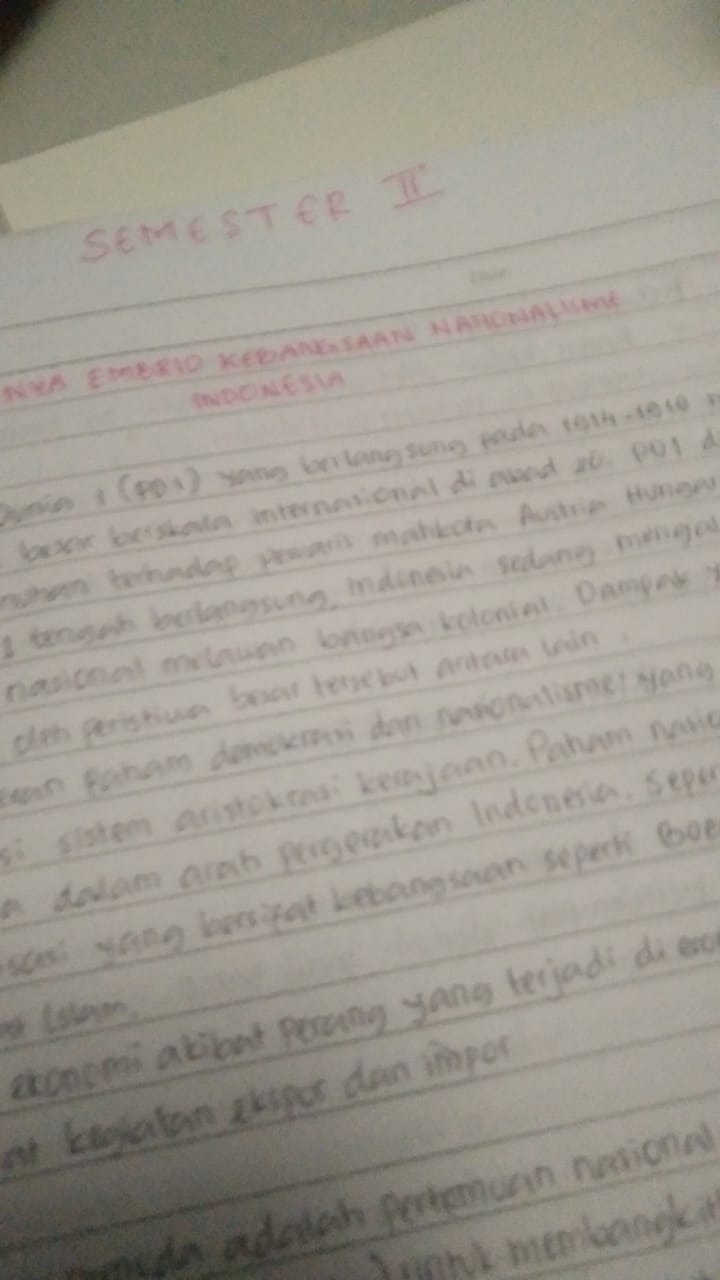 SEMESTER II
NYA EMBRIO KEBANGSAAN NASIONALISME
INDONESIA
Dunia 1 (PD1) yang berlangsung pada 1914-1918
besar berskala internasional di abad 20. PD1
terhadap pewaris mahkota Austria Hungar
tengah berlangsung, Indonesia sedang mengal
nasional melawan bangsa kolonial. Dampak
oleh peristiwa besar tersebut antara lain :
paham demokrasi dan nasionalisme, yang
si sistem aristokrasi kerajaan. Paham nasio
a dalam arah pergerakan Indonesia. Seper
sasi yang bersifat kebangsaan seperti Boe
Islam.
ekonomi akibat perang yang terjadi di ero
at kegiatan ekspor dan impor
adalah pertemuan nasional
untuk membangkit